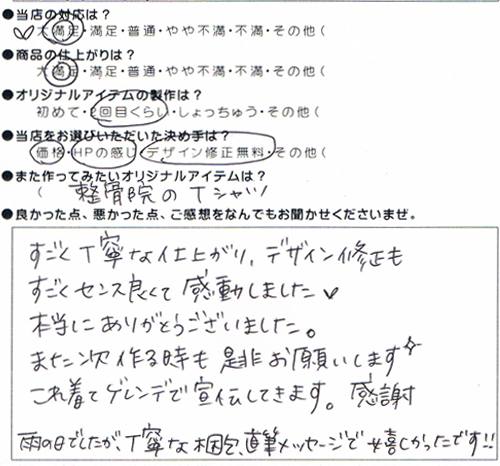 ●当店の対応は？
大満足・満足・普通・やや不満・不満・その他（
●商品の仕上がりは？
大満足・満足・普通・やや不満・不満・その他（
●オリジナルアイテムの製作は？
初めて・2回目くらい・しょっちゅう・その他（
●当店をお選びいただいた決め手は？
価格・HPの感じ・デザイン修正無料・その他（
●また作ってみたいオリジナルアイテムは？
（ 整骨院のTシャツ
●良かった点、悪かった点、ご感想をなんでもお聞かせくださいませ。
すごく丁寧な仕上がり、デザイン修正も
すごくセンス良くて感動しました♡
本当にありがとうございました。
また次作る時も是非お願いします✧
これ着てゲレンデで宣伝してきます。感謝
雨の日でしたが、丁寧な梱包、直筆メッセージで嬉しかったです!!